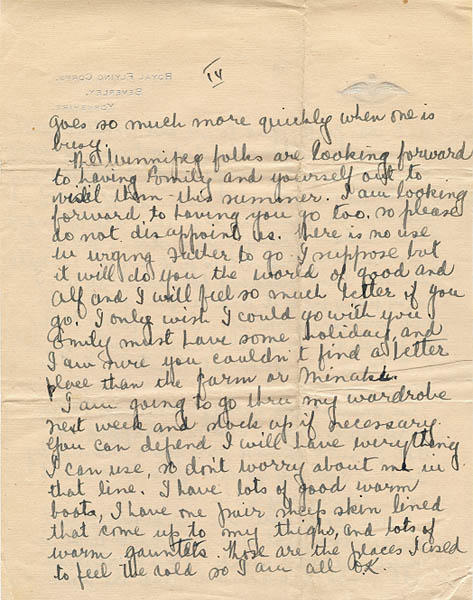 IV
ROYAL FLYING CORPS,
BEVERLEY,
YORKSHIRE.
goes so much more quickly when one is
busy.
The Winnipeg folks are looking forward
to having Emily and yourself out to
visit them this summer. I am looking
forward to having you go too, so please
do not disappoint us. There is no use
in urging Father to go I suppose but
it will do you the world of good and
Alf and I will feel so much better if you
go. I only wish I could go with you
Emily must have some holidays, and
I am sure you couldn't find a better
place than the farm or Minaki.
I am going to go thru my wardrobe
next week and stock up if necessary.
You can depend I will have everything
I can use, so don't worry about me in
that line. I have lots of good warm
boots, I have one pair sheep skin lined
that come up to my thighs, and lots of
warm gauntlets. Those are the places I used
to feel the cold so I am all O.K.